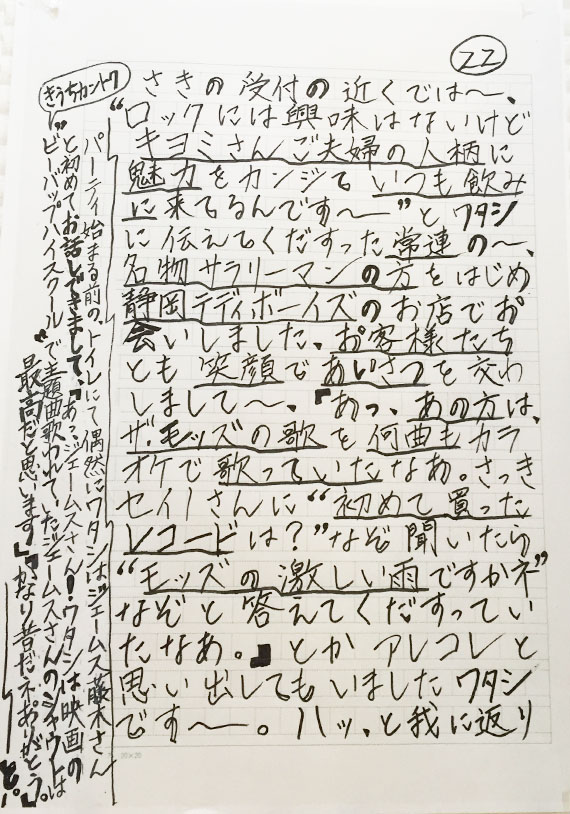 22
さきの受付の近くでは〜、
“ロックには興味はないけど
キヨミさんご夫婦の人柄に
魅力をカンジていつも飲み
に来てるんです〜”とワタシ
に伝えてくだすった常連の〜、
名物サラリーマンの方をはじめ
静岡テディボーイズのお店でお
会いしました、お客様たち
とも笑顔であいさつを交わ
しまして〜、『あっ、あの方は、
ザ・モッズの歌を何曲もカラ
オケで歌っていたなあ。さっき
セイノーさんに“初めて買った
レコードは？”なぞ聞いたら
“モッズの激しい雨ですかネ”
なぞと答えてくだすってい
たなあ。』とかアレコレと
思い出してもいましたワタシ
です〜。ハッ、と我に返り
きうちカントク
パーティ始まる前の、トイレにて偶然にワタシはジェームス藤木さん
と初めてお話しできまして、『あっ、ジェームスさん！ワタシは映画の
“ビーバップハイスクール”で主題曲歌われていたジェームスさんのシャウトは
最高だと思います』『かなり昔だネ。ありがとう。』
と。
20×20